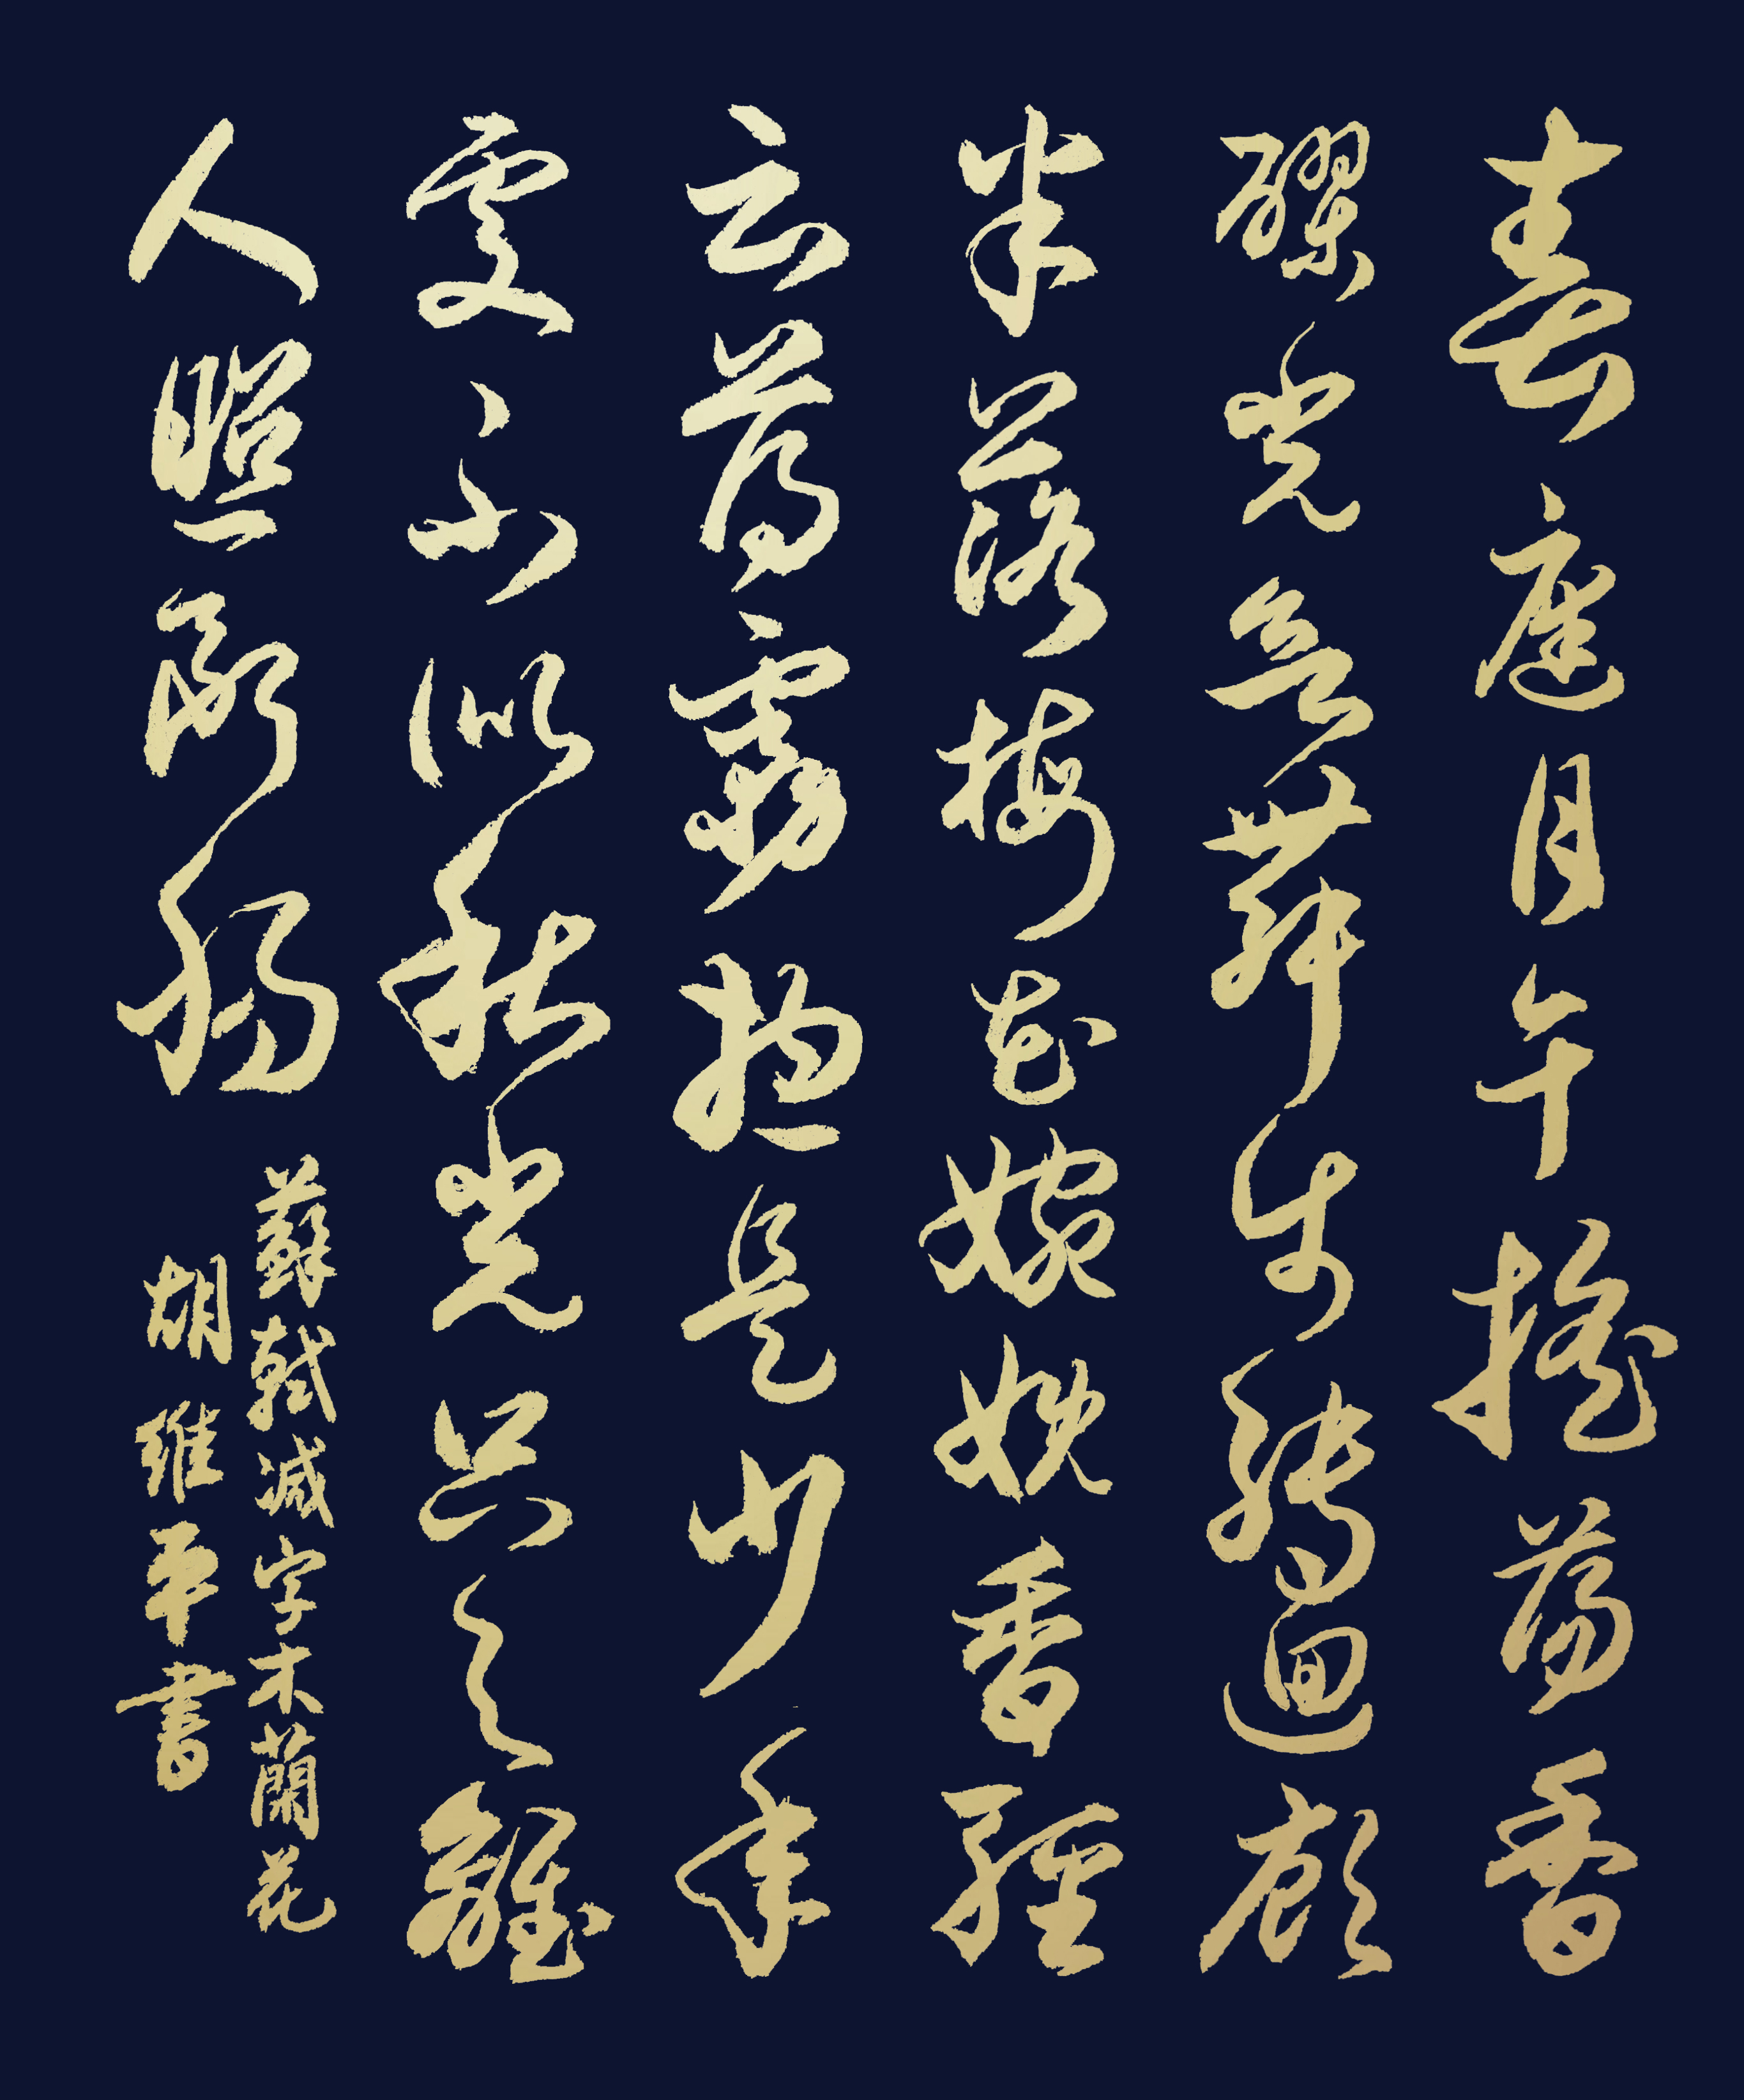 春庭月午搖蕩香
醪光欲舞步轉迴廊
半落梅花婉娩香輕
云薄霧總是少年
處不似秋光只與離
人照斷腸
蘇軾減字木蘭花
胡維平書